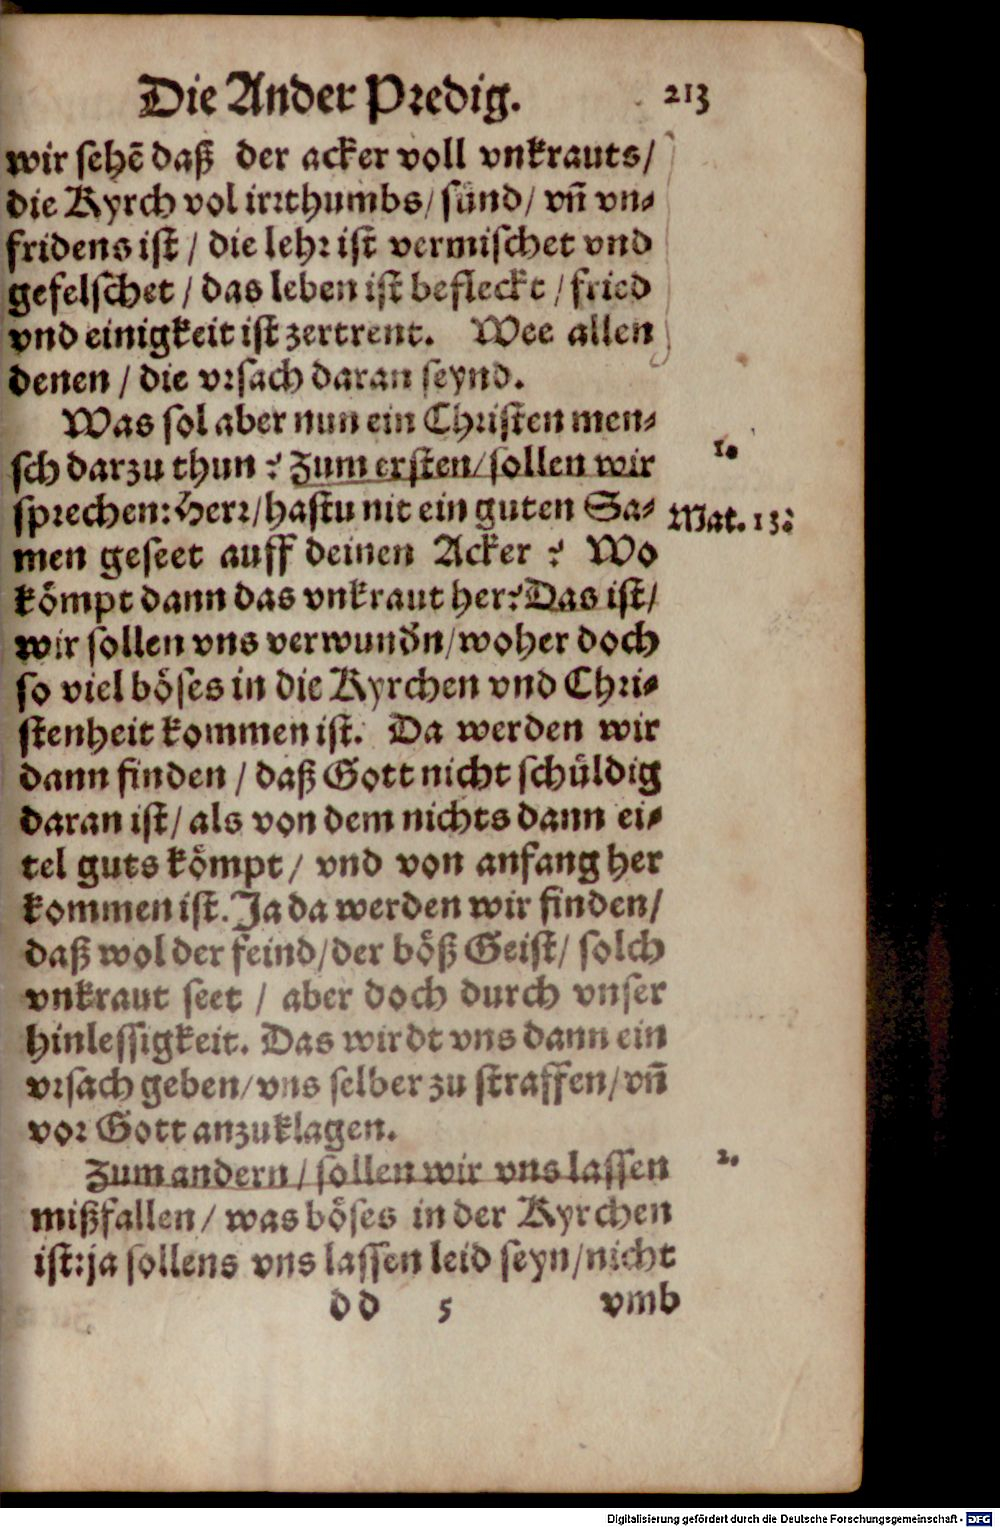 Die Ander Predig. 213
wir sehē daß der acker voll vnkrauts/
die Kyrch vol irrthumbs/ sünd/ vn̄ vn⸗
fridens ist / die lehr ist vermischet vnd
gefelschet / das leben ist befleckt / fried
vnd einigkeit ist zertrent. Wee allen
denen / die vrsach daran seynd.
Was sol aber nun ein Christen men⸗
sch darzu thun ? Zum ersten/ sollen wir
1.
sprechen: Herr/ hastu nit ein guten Sa⸗
Mat. 13.
men geseet auff deinen Acker ? Wo
kömpt dann das vnkraut her? Das ist/
wir sollen vns verwundn̄/ woher doch
so viel böses in die Kyrchen vnd Chri⸗
stenheit kommen ist. Da werden wir
dann finden / daß Gott nicht schüldig
daran ist/ als von dem nichts dann ei⸗
tel guts kömpt/ vnd von anfang her
kommen ist. Ja da werden wir finden/
daß wol der feind/ der böß Geist/ solch
vnkraut seet / aber doch durch vnser
hinlessigkeit. Das wirdt vns dann ein
vrsach geben/ vns selber zu straffen/ vn̄
vor Gott anzuklagen.
Zum andern / sollen wir vns lassen
2.
mißfallen/ was böses in der Kyrchen
ist: ja sollens vns lassen leid seyn/ nicht
dd 5 vmb
Digitalisierung gefördert durch die Deutsche Forschungsgemeinschaft - DFG